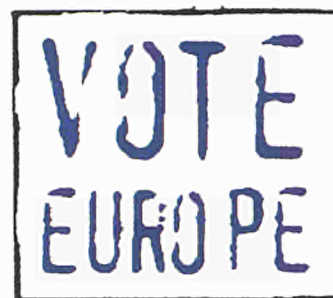 VOTE
EUROPE